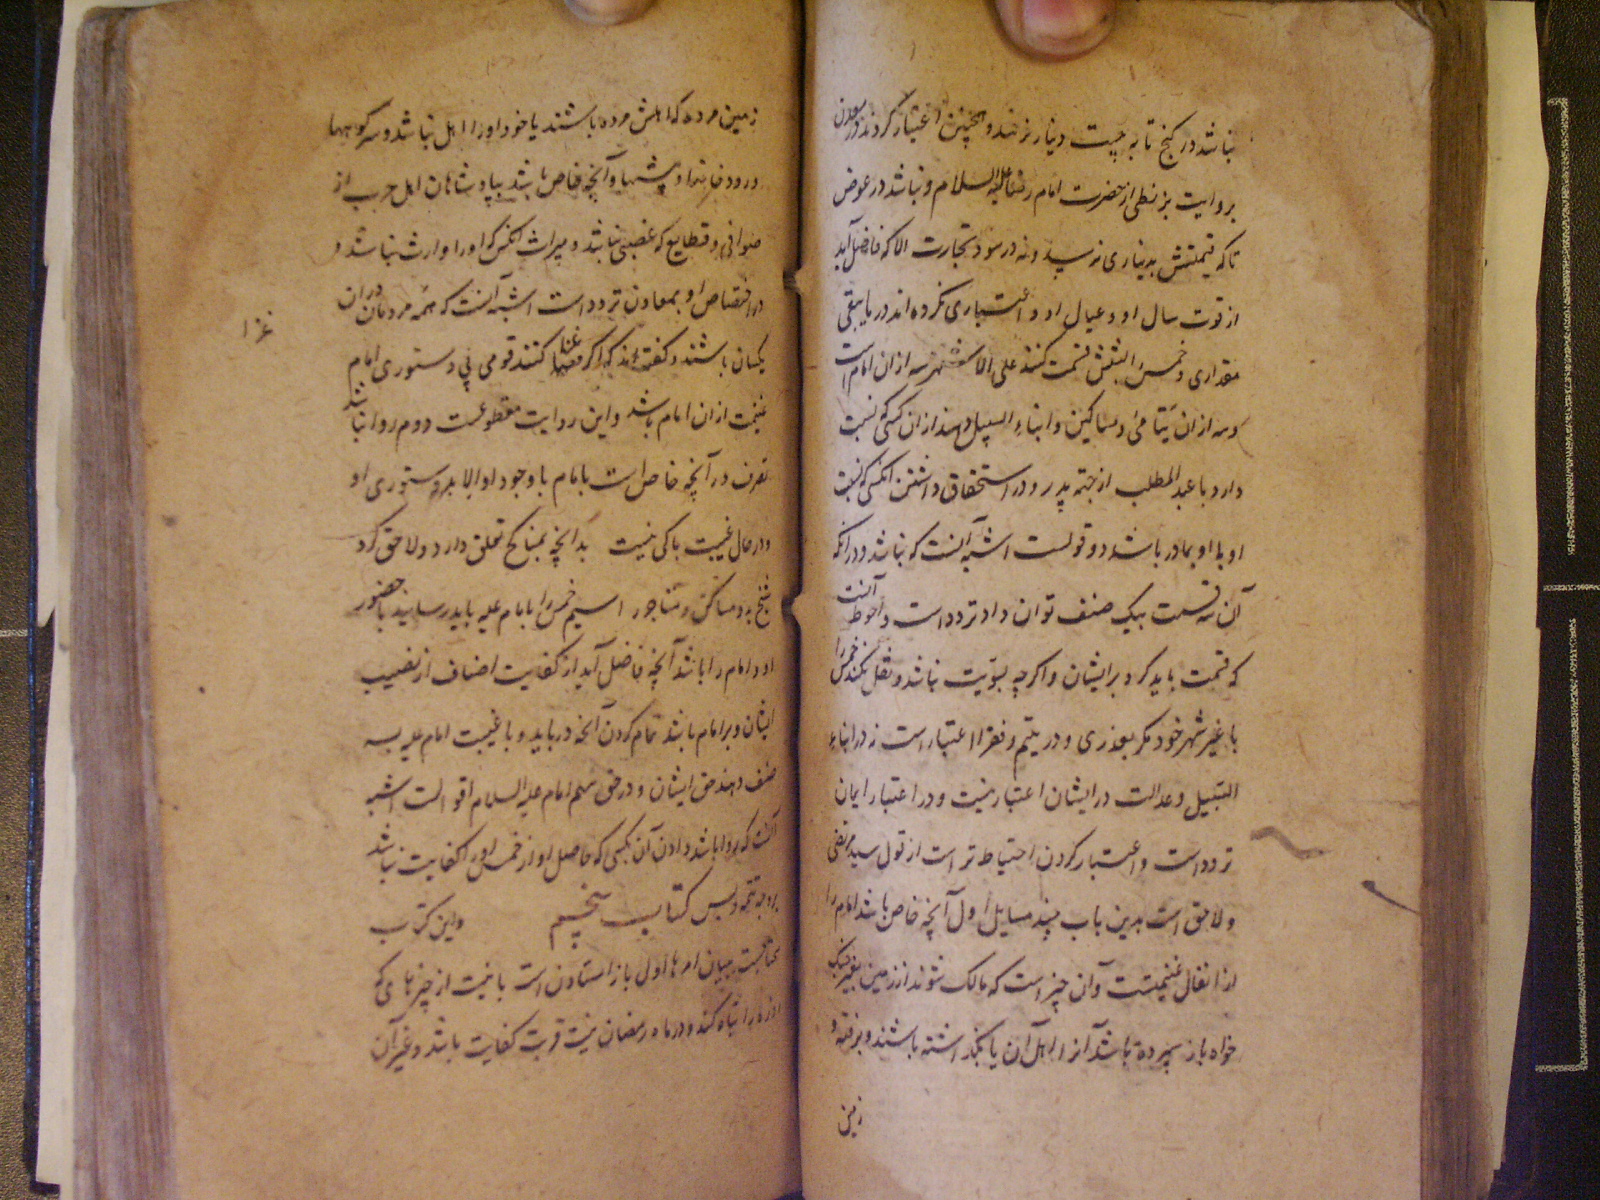 نباشد در گنج تا به بیست دینار نرسد و همچنین اعتبار کردند در معدن
بروایت بزنطی از حضرت امام رضا علیه السلام و نباشد در غوص
تا که قیمتش بدیناری نرسد و نه در سود تجارت الا که فاضل آید
از قوت سال او و عیال او و اعتباری نکرده اند در مابقی
مقداری و خمس را بشش قسمت کنند علی الاشهر سه از ان امام است
و سه از ان یتامی و مساکین و ابناء السبیل دهند از ان کسی که نسبت
دارد با عبد المطلب از جهة پدر و در استحقاق داشتن انکس که نسبت
او با او بمادر باشد دو قولست اشبه آنست که نباشد و در انکه
آن سه قسمت بیک صنف توان داد تردد است و احوط آنست
که قسمت باید کرد بر ایشان و اگر چه بسویت نباشد و نقل نکند خمس را
با غیر شهر خود مگر بعذری و در یتیم فقر را اعتبار است نه در ابناء
السبیل و عدالت در ایشان اعتبار نیست و در اعتبار ایمان
تردد است و اعتبار کردن احتیاط تر است از قول سید مرتضی
و لاحق است بدین باب چند مسایل اول آنچه خاص باشد امام را
از انفال غنیمتست و آن چیز است که مالک شوند از زمین بغیر جنگ
خواه باز سپرده باشد آنرا اهل آن یا بگذاشته باشند و برفته و
زمین
زمین مرده که اهلش مرده باشند یا خود او را اهل نباشد و سر کوهها
و رودخانها و بیشها و آنچه خاص باشد بپادشاهان اهل حرب از
صوافی و قطایع که غصبی نباشد و میراث انکس که او را وارث نباشد و
در اختصاص او بمعادن تردد است اشبه آنست که همه مردمان در ان
یکسان باشند و گفته اند که اگر غزا کنند قومی بی دستوری امام
غزا
غنیمت از ان امام باشد و این روایت مقطوعست دوم روا نباشد
تصرف در آنچه خاص است بامام با وجود او الا بدستوری او
و در حال غیبت باکی نیست بدانچه بمناکح تعلق دارد و لاحق کرد
شیخ به و مساکن و متاجر را سیم خمس را بامام علیه باید رسانید با حضور
او و امام را باشد آنچه فاضل آید از کفایت اصناف از نصیب
ایشان و بر امام باشد تمام کردن آنچه در باید و با غیبت امام علیه بسه
صنف دهند حق ایشان و در حق سهم امام علیه السلام اقوالست اشبه
آنست که روا باشد دادن آن بکسی که حاصل او از خمس او را کفایت نباشد
بر وجه تتمه و بس کتاب پنجم و این کتاب
بیان امرها اول باز استادن است بانیت از چیزهای که
روزه را تباه کند و در ماه رمضان نیت قربت کفایت باشد و غیر آن